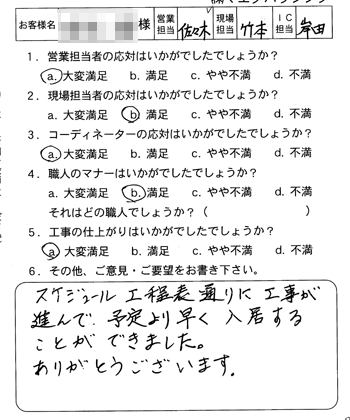 お客様名 様 営業担当 佐々木 現場担当 竹本 IC担当 岸田
1．営業担当者の応対はいかがでしたでしょうか？
a. 大変満足 b. 満足 c. やや不満 d. 不満
2．現場担当者の応対はいかがでしたでしょうか？
a. 大変満足 b. 満足 c. やや不満 d. 不満
3．コーディネーターの応対はいかがでしたでしょうか？
a. 大変満足 b. 満足 c. やや不満 d. 不満
4．職人のマナーはいかがでしたでしょうか？
a. 大変満足 b. 満足 c. やや不満 d. 不満
それはどの職人でしょうか？（ ）
5．工事の仕上がりはいかがでしたでしょうか？
a. 大変満足 b. 満足 c. やや不満 d. 不満
6．その他、ご意見・ご要望をお書き下さい。
スケジュール工程表通りに工事が
進んで、予定より早く入居する
ことができました。
ありがとうございます。